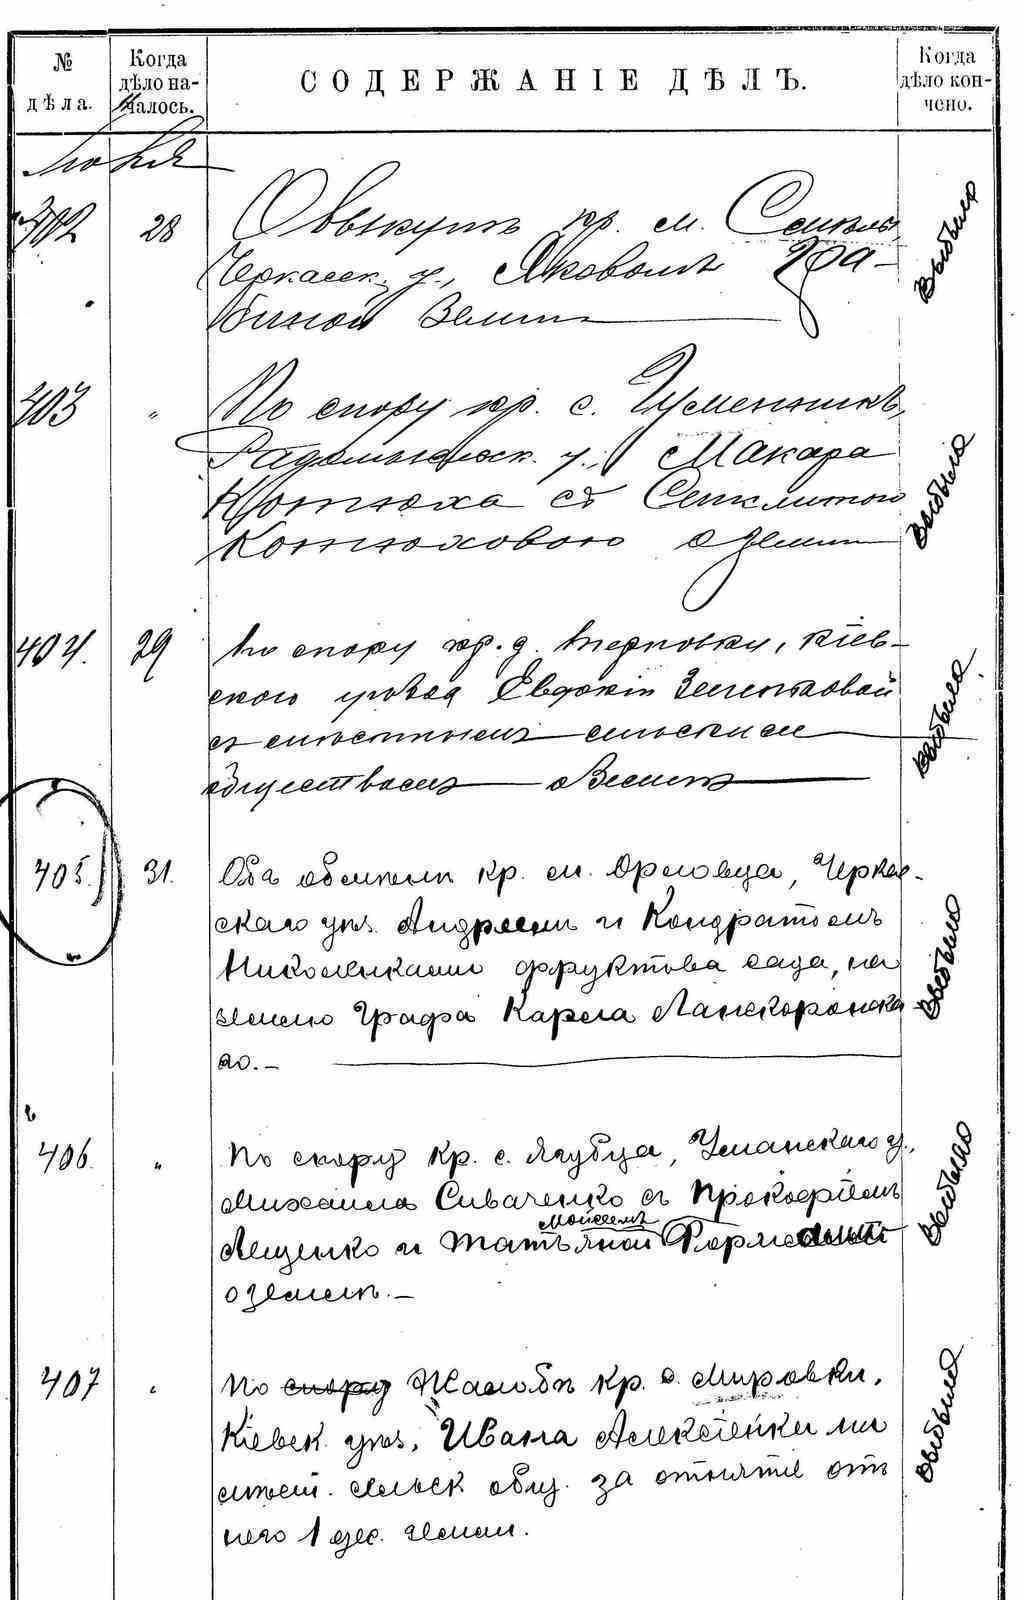 № дѣла.
Когда дѣло на-
чалось.
СОДЕРЖАНІЕ ДѢЛЪ.
Когда дѣло кон-
чено.
402
28
О выкупѣ кр. м. Смѣлы,
Черкасск. у., Яковомъ Гра-
биной земли
выбыло
403
"
По спору кр. с.
Радомысльск. у., Макара
Котюха съ
Котюховою о земли
выбыло
404.
29
По спору кр. д. Терновки, Кіев-
скаго уѣзда Евдокіи
съ мѣстнымъ сельскимъ
обществомъ о земли
выбыло
405.
31.
Объ обмѣнѣ кр. м. Орловца, Черкас-
скаго уѣз. Андреемъ и Кондратомъ
Николенками фруктова сада, на
землю Графа Карла Ланскоронска
го.-
выбыло
406.
"
По спору кр. с. Ягубца, Уманскаго у.,
Михаила Сиваченко съ Прокофіемъ
Мойсеемъ
Лещенко и Татьяной
о земли.-
выбыло
407
"
По спору Жалобѣ кр. с. Мировки,
Кіевск. уѣз., Ивана Алексѣенки на
мѣст. сельск общ. за отнятіе отъ
него 1 дес. земли.
выбыло